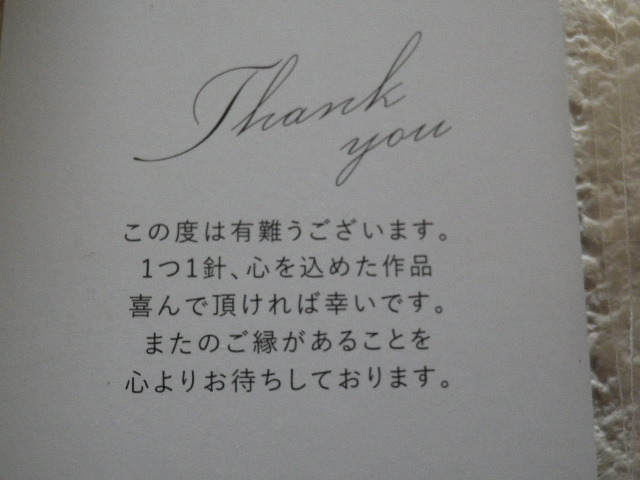 Thank
you
この度は有難うございます。
1つ1針、心を込めた作品
喜んで頂ければ幸いです。
またのご縁があることを
心よりお待ちしております。